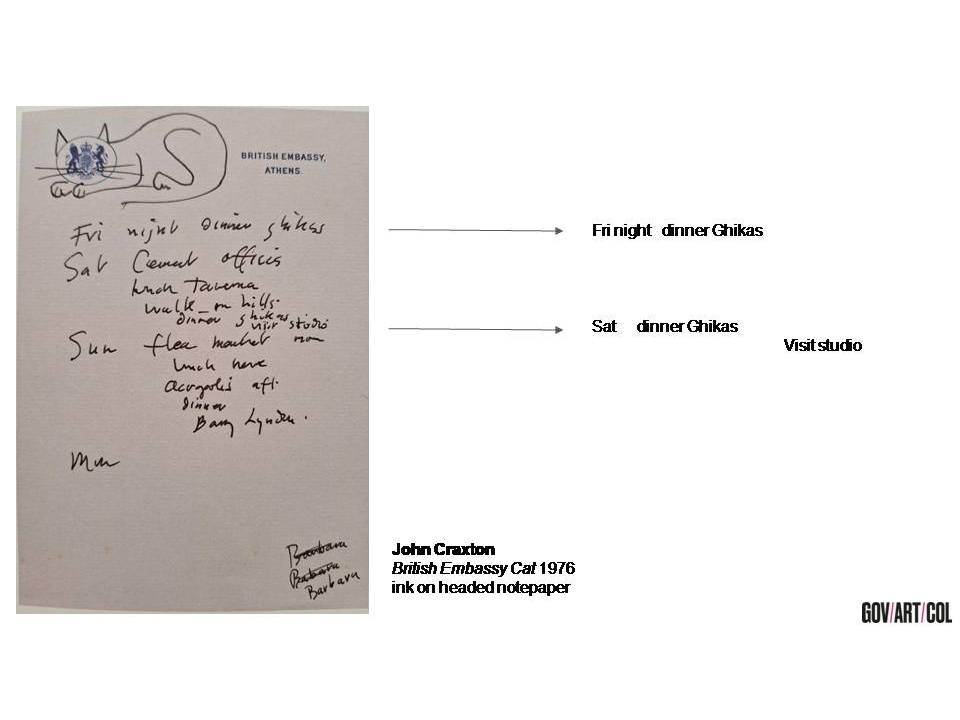 BRITISH EMBASSY,
ATHENS.
Fri night dinner ghikas
Sat Cement offices
lunch Taverna
walk on hills.
dinner ghikas
visit studio
Sun flea market
lunch here
acropolis aft.
dinner
Barry Lyndon.
Mon
Barbara
Barbara
Barbara
Fri night dinner Ghikas
Sat dinner Ghikas
Visit studio
John Craxton
British Embassy Cat 1976
ink on headed notepaper
GOV/ART/COL